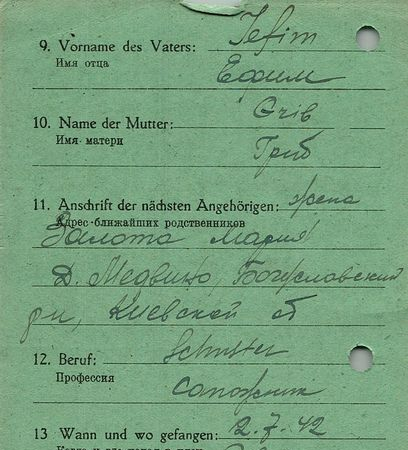 9. Vorname des Vaters: Jefim
Имя отца Ефим
Grib
10. Name der Mutter:
Имя матери Гриб
11. Anschrift der nächsten Angehörigen: жена
Адрес ближайших родственников
Залота Мария
д. Медвино, Богуславский
р-н, Киевской об
12. Beruf: Schuster
Профессия сапожник
13 Wann und wo gefangen: 2.7.42